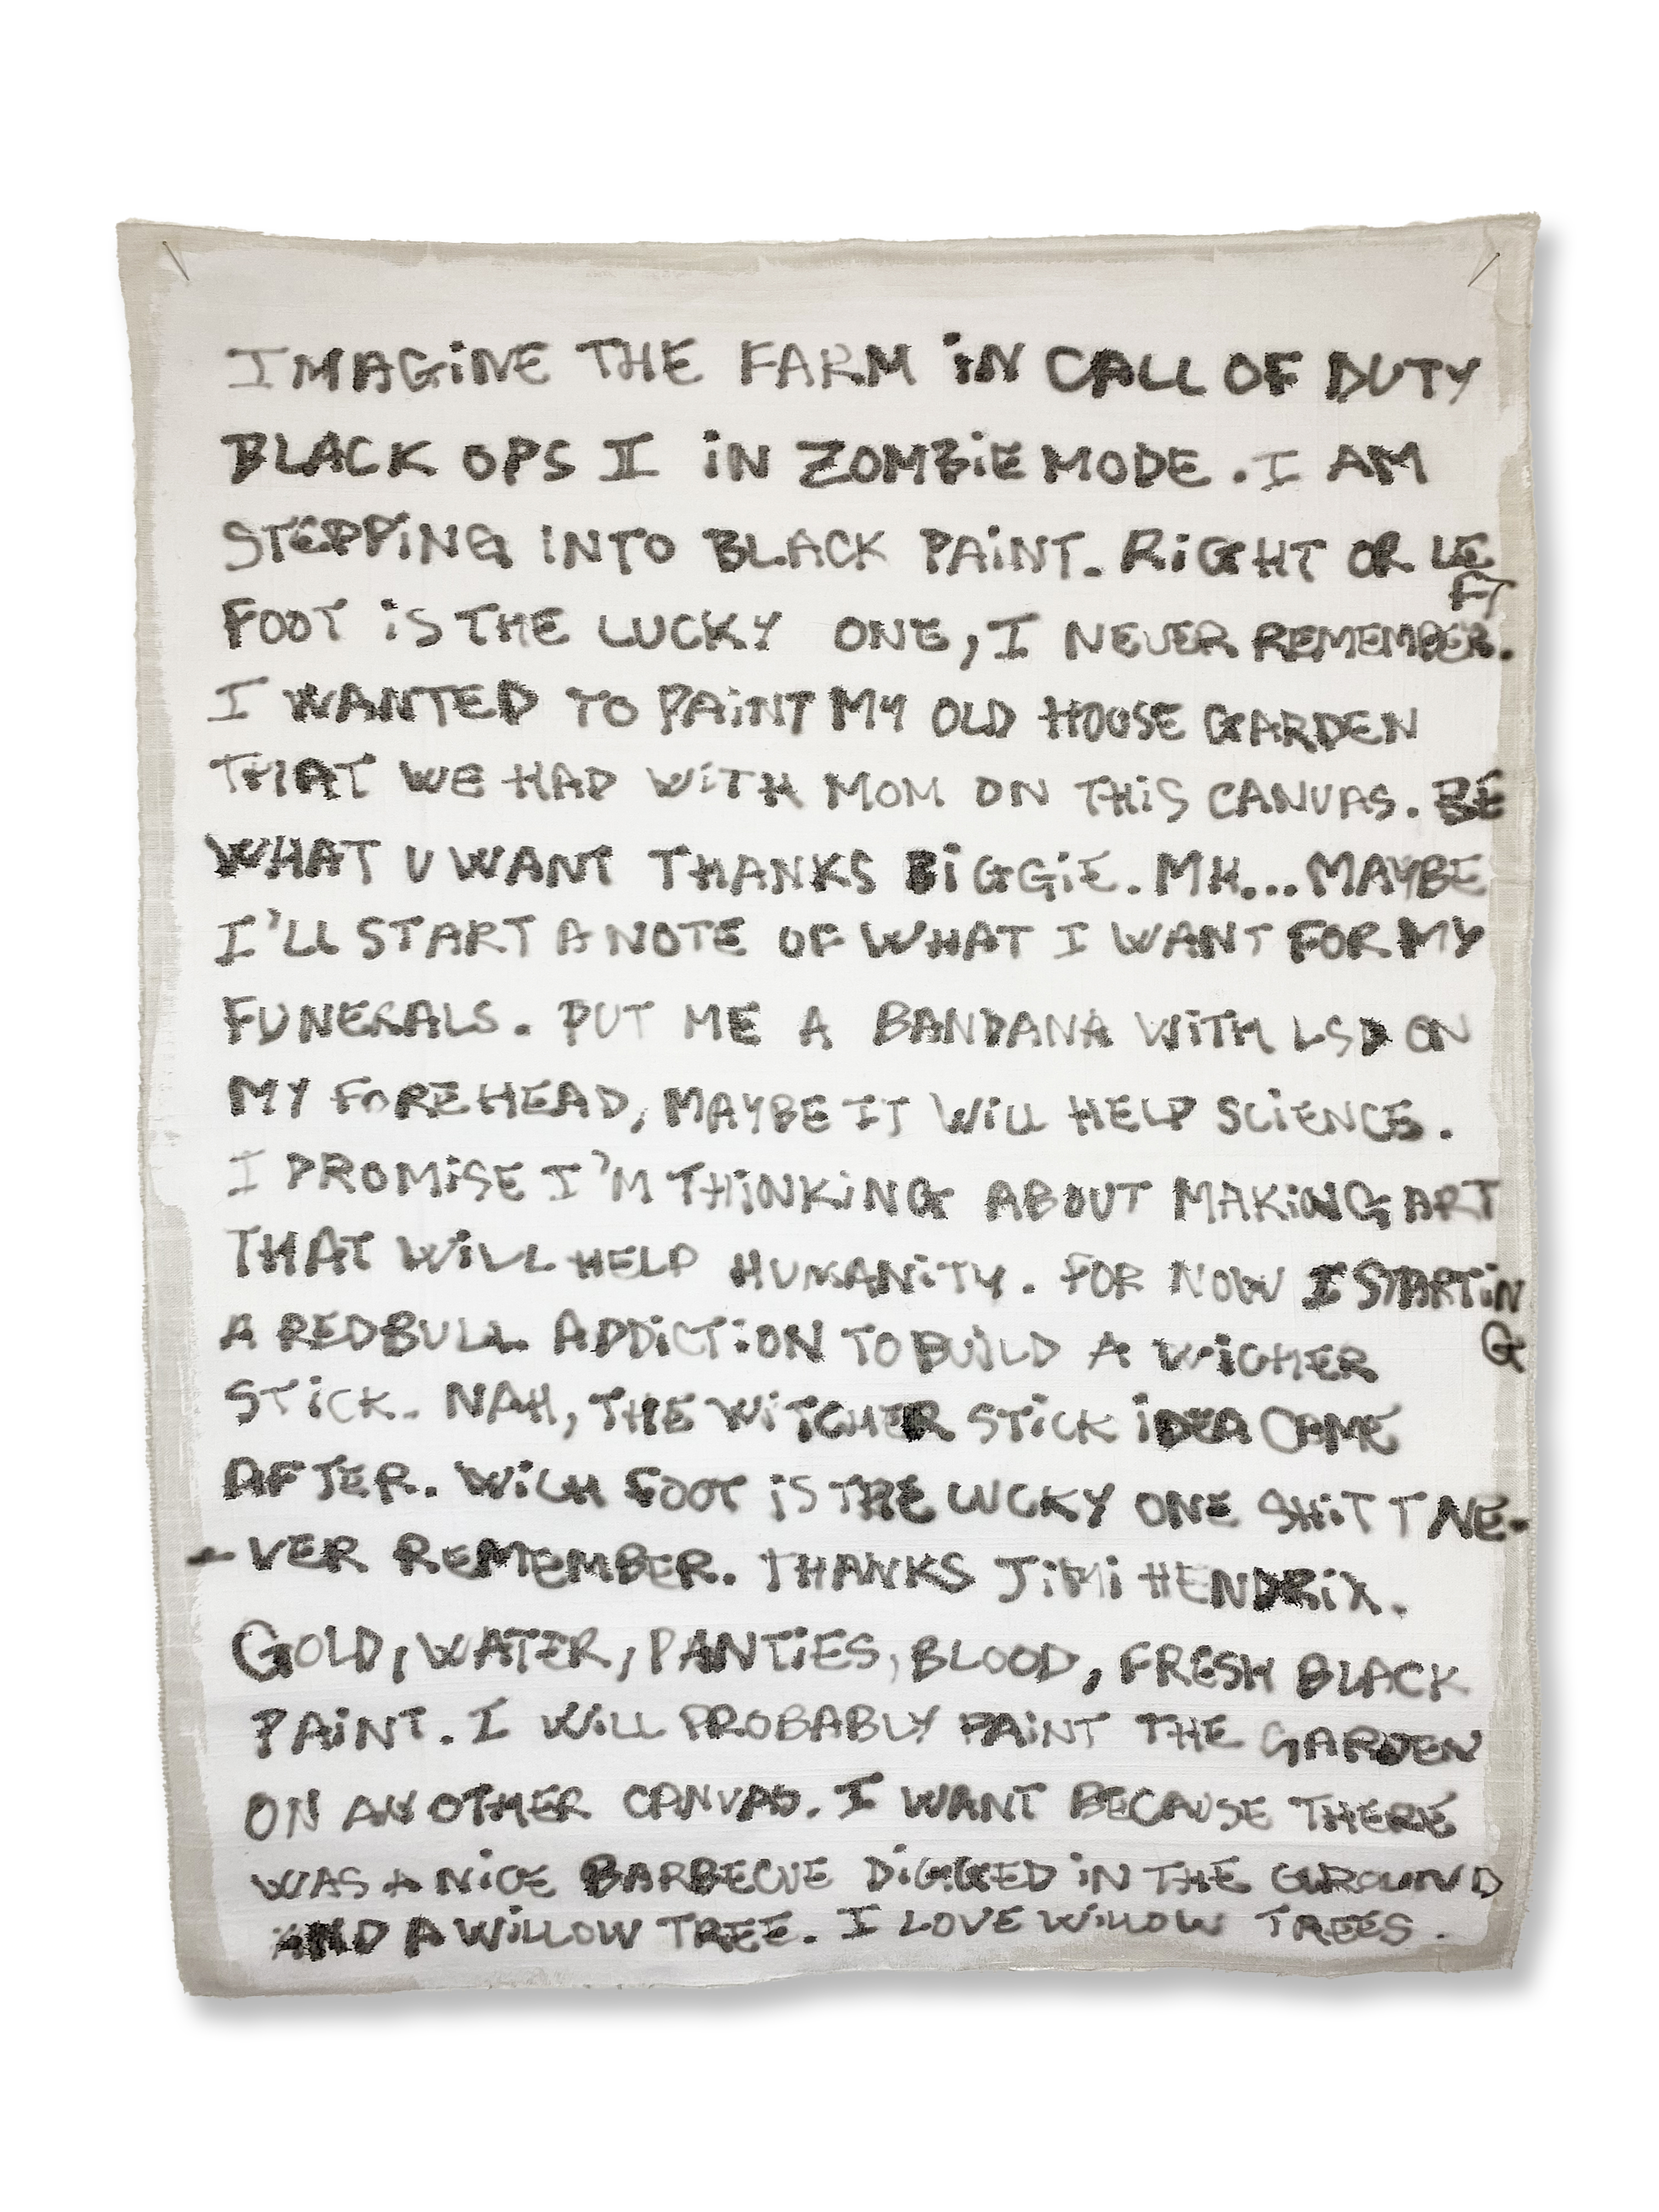 IMAGiNE THE FARM iN CALL OF DUTY
BLACK OPS II iN ZOMBiE MODE. I AM
STEPPiNG INTO BLACK PAiNT. RiGHT OR LE
FT
FOOT iS THE LUCKY ONE, I NEVER REMEMBER.
I WANTED TO PAiNT MY OLD HOUSE GARDEN
THAT WE HAD WiTH MOM ON THiS CANVAS. BE
WHAT U WANT THANKS BiGGiE. MH... MAYBE
I'LL START A NOTE OF WHAT I WANT FOR MY
FUNERALS. PUT ME A BANDANA WiTH LSD ON
MY FOREHEAD, MAYBE IT WiLL HELP SCiENCE.
I PROMiSE I'M THiNKiNG ABOUT MAKiNG ART
THAT WiLL HELP HUMANiTY. FOR NOW I STARTiN
G
A REDBULL ADDiCTiON TO BUiLD A WiCHER
STiCK. NAH, THE WiTCHER STiCK iDEA CAME
AFTER. WiCH FOOT iS THE LUCKY ONE SHiT I NE-
-VER REMEMBER. THANKS JiMi HENDRiX.
GOLD, WATER, PANTiES, BLOOD, FRESH BLACK
PAiNT. I WiLL PROBABLY PAiNT THE GARDEN
ON ANOTHER CANVAS. I WANT BECAUSE THERE
WAS A NiCE BARBECUE DiGGED iN THE GROUND
AND A WiLLOW TREE. I LOVE WiLLOW TREES.